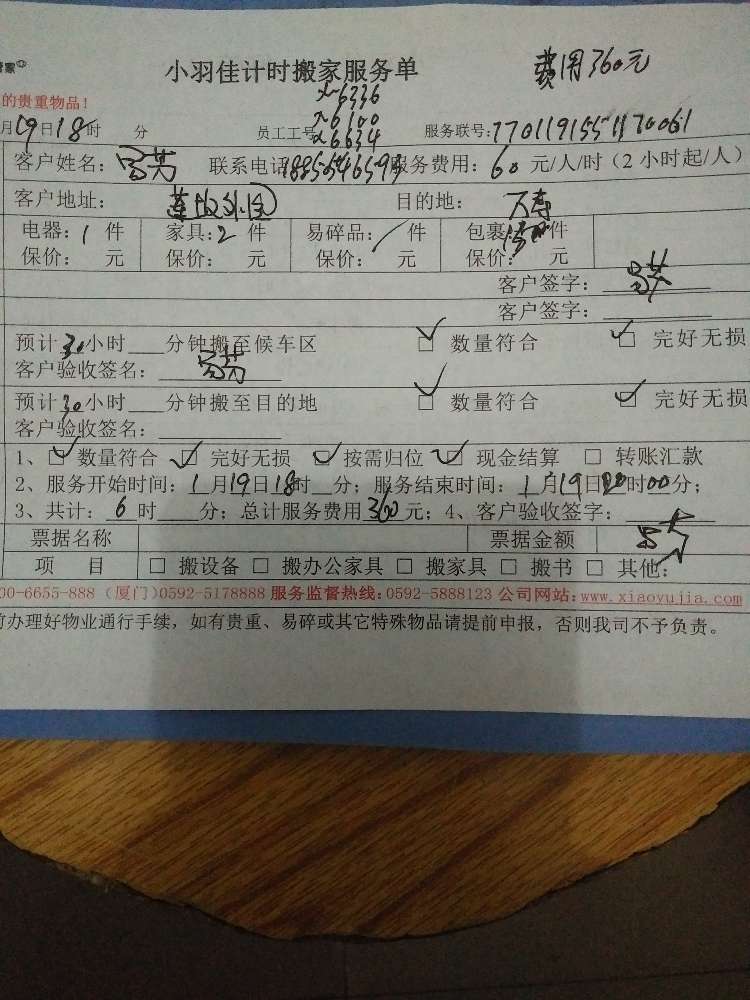 小羽佳计时搬家服务单 费用360元
的贵重物品!
x-6336
x6100
x6634
月19日18时 分 员工工号: 服务联号:7701191551170061
客户姓名: 联系电话: 服务费用:60元/人/时(2小时起/人)
客户地址: 目的地:万寿
电器:1件 家具:2件 易碎品:/件 包裹: 件
保价: 元 保价: 元 保价: 元 保价: 元
客户签字:
客户签字:
预计30小时 分钟搬至候车区 □ 数量符合 □ 完好无损
客户验收签名:
预计30小时 分钟搬至目的地 □ 数量符合 □ 完好无损
客户验收签名:
1、□ 数量符合 □ 完好无损 □ 按需归位 □ 现金结算 □ 转账汇款
2、服务开始时间:1月19日18时 分;服务结束时间:1月19日20时00分;
3、共计:6时 分;总计服务费用360元;4、客户验收签字:
票据名称 票据金额
项 目 □ 搬设备 □ 搬办公家具 □ 搬家具 □ 搬书 □ 其他:
00-6655-888 (厦门)0592-5178888 服务监督热线:0592-5888123 公司网站:www.xiaoyujia.com
前办理好物业通行手续,如有贵重、易碎或其它特殊物品请提前申报,否则我司不予负责。